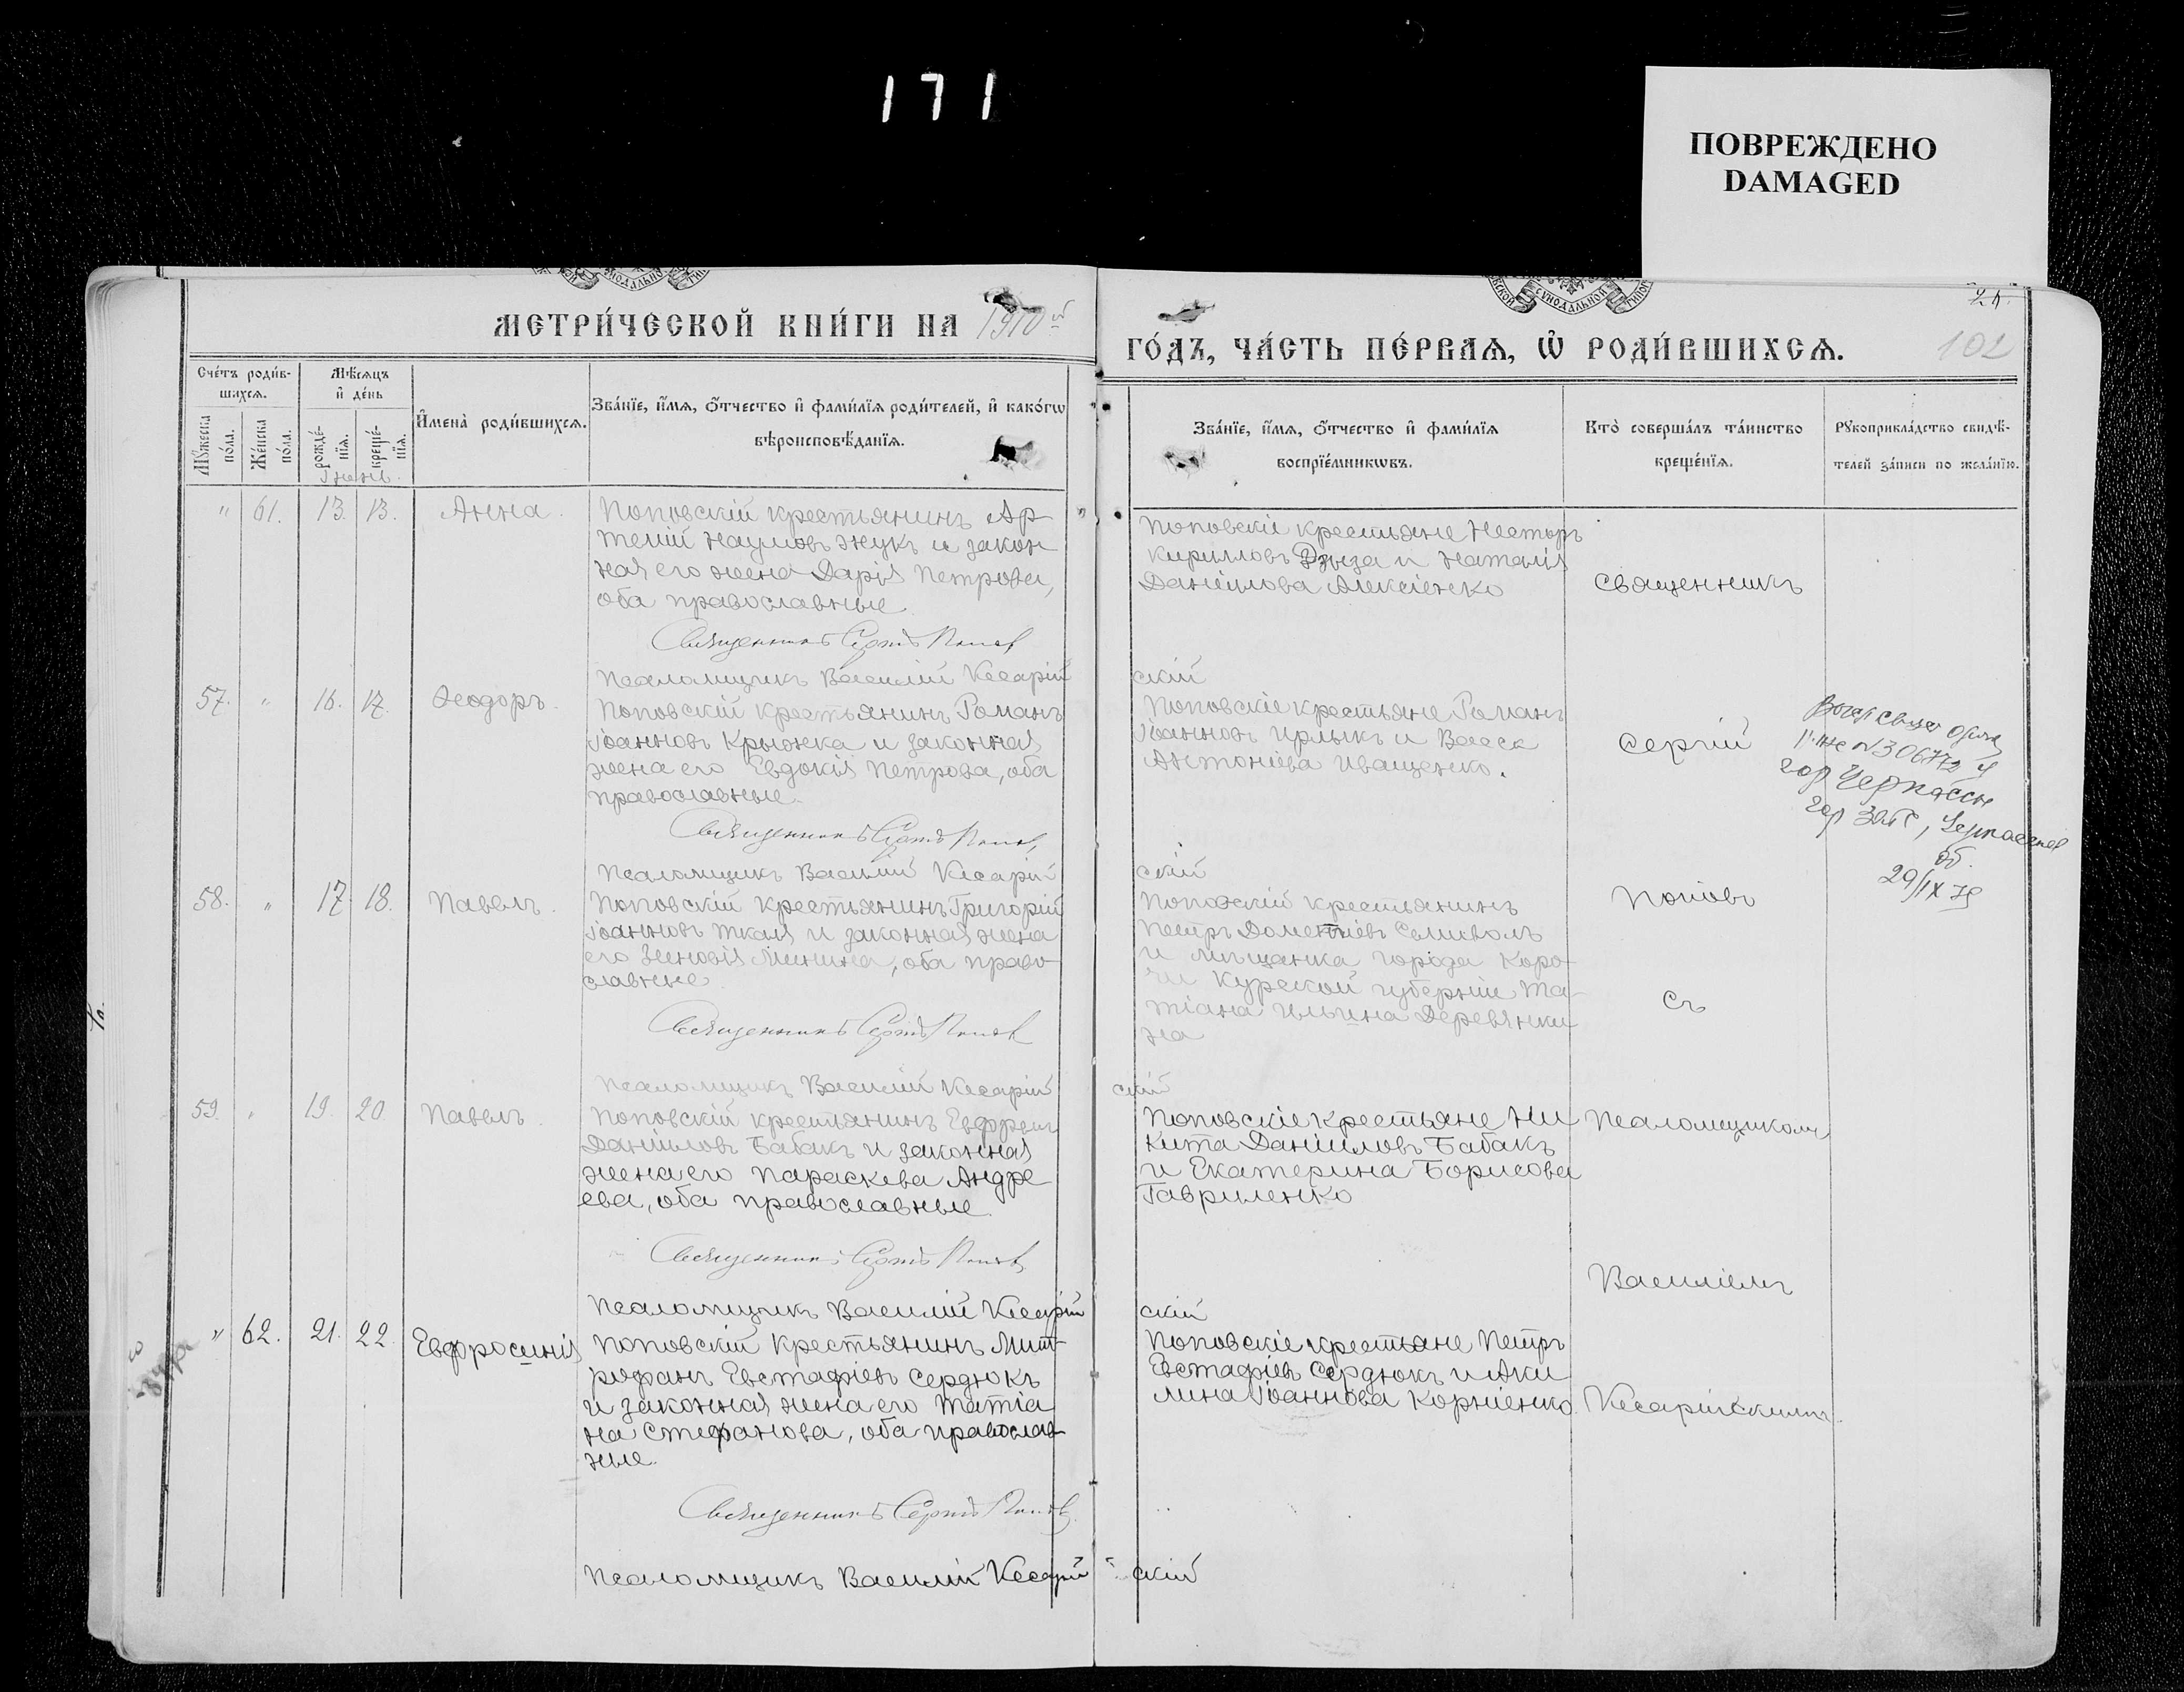 171
ПОВРЕЖДЕНО
DAMAGED
МЕТРИ́ЧЕСКОЙ КНИ́ГИ НА 1910й
ГО́ДЪ, ЧА́СТЬ ПЕ́РВАЯ, Ѡ҆ РОДИ́ВШИХСЯ.
102
Сче́тъ роди́в-
шихся.
Мѣ́сяцъ
и҆ де́нь
Мꙋ́жеска
по́ла.
Же́нска
по́ла.
рожде́-
нїя.
креще́-
нїя.
И҆мена̀ роди́вшихся.
Зва́нїе, и҆́мя, ѻ҆́тчество и҆ фами́лїя роди́телей, и҆ како́гѡ
вѣроисповѣ́данїя.
Зва́нїе, и҆́мя, ѻ҆́тчество и҆ фами́лїя
воспрїе́мникѡвъ.
Кто̀ соверша́лъ та́инство
креще́нїя.
Рꙋкоприкла́дство свидѣ́-
телей за́писи по жела́нїю.
" 61. 13. 13. Анна.
Поповскій крестьянинъ Ар-
темій Наумовъ Жукъ и закон
ная его жена Дарія Петрова,
оба православные.
Священникъ Сергій Попов
Псаломщикъ Василій Кесарій
скій
Поповскіе крестьяне Несторъ
Кирилловъ Дзыза и Наталія
Даніилова Алексіенко
Священникъ
57. " 16. 17. Ѳеодоръ.
Поповскій крестьянинъ Романъ
Іоанновъ Крыжка и законная
жена его Евдокія Петрова, оба
православные.
Священникъ Сергій Попов,
Псаломщикъ Василій Кесарій
скій
Поповскіе крестьяне Романъ
Іоанновъ Ирлыкъ и Васса
Антоніева Иващенко.
Сергій
N 306772
гор Черкассы
гор ЗАГС,
об.
29/IX 75
58. " 17 18. Павелъ.
Поповскій крестьянинъ Григорій
Іоанновъ Ткаля и законная жена
его Зиновія Минина, оба право-
славные.
Священникъ Сергій Попов
Псаломщикъ Василій Кесарій
скій
Поповскій крестьянинъ
Петръ Доментіевъ Селиволъ
и мѣщанка города Коро-
чи Курской губерніи Та-
тіана Ильина Деревянки
на
Поповъ
съ
59. " 19. 20 Павелъ.
Поповскій крестьянинъ Евфремъ
Даніиловъ Бабакъ и законная
жена его Параскева Андре
ева, оба православные.
Священникъ Сергій Попов,
Псаломщикъ Василій Кесарій
скій
Поповскіе крестьяне Ни
кита Даніиловъ Бабакъ
и Екатерина Борисова
Гавриленко
Псаломщикомъ
Василіемъ
" 62. 21. 22. Евфросинія
Поповскій крестьянинъ Мит-
рофанъ Евстафіевъ Сердюкъ
и законная жена его Татіа
на Стефанова, оба православ
ные.
Священникъ Сергій Попов.
Псаломщикъ Василій Кесарій
скій
Поповскіе крестьяне Петръ
Евстафіевъ Сердюкъ и Аки
лина Іоаннова Корніенко.
Кесарійскимъ.